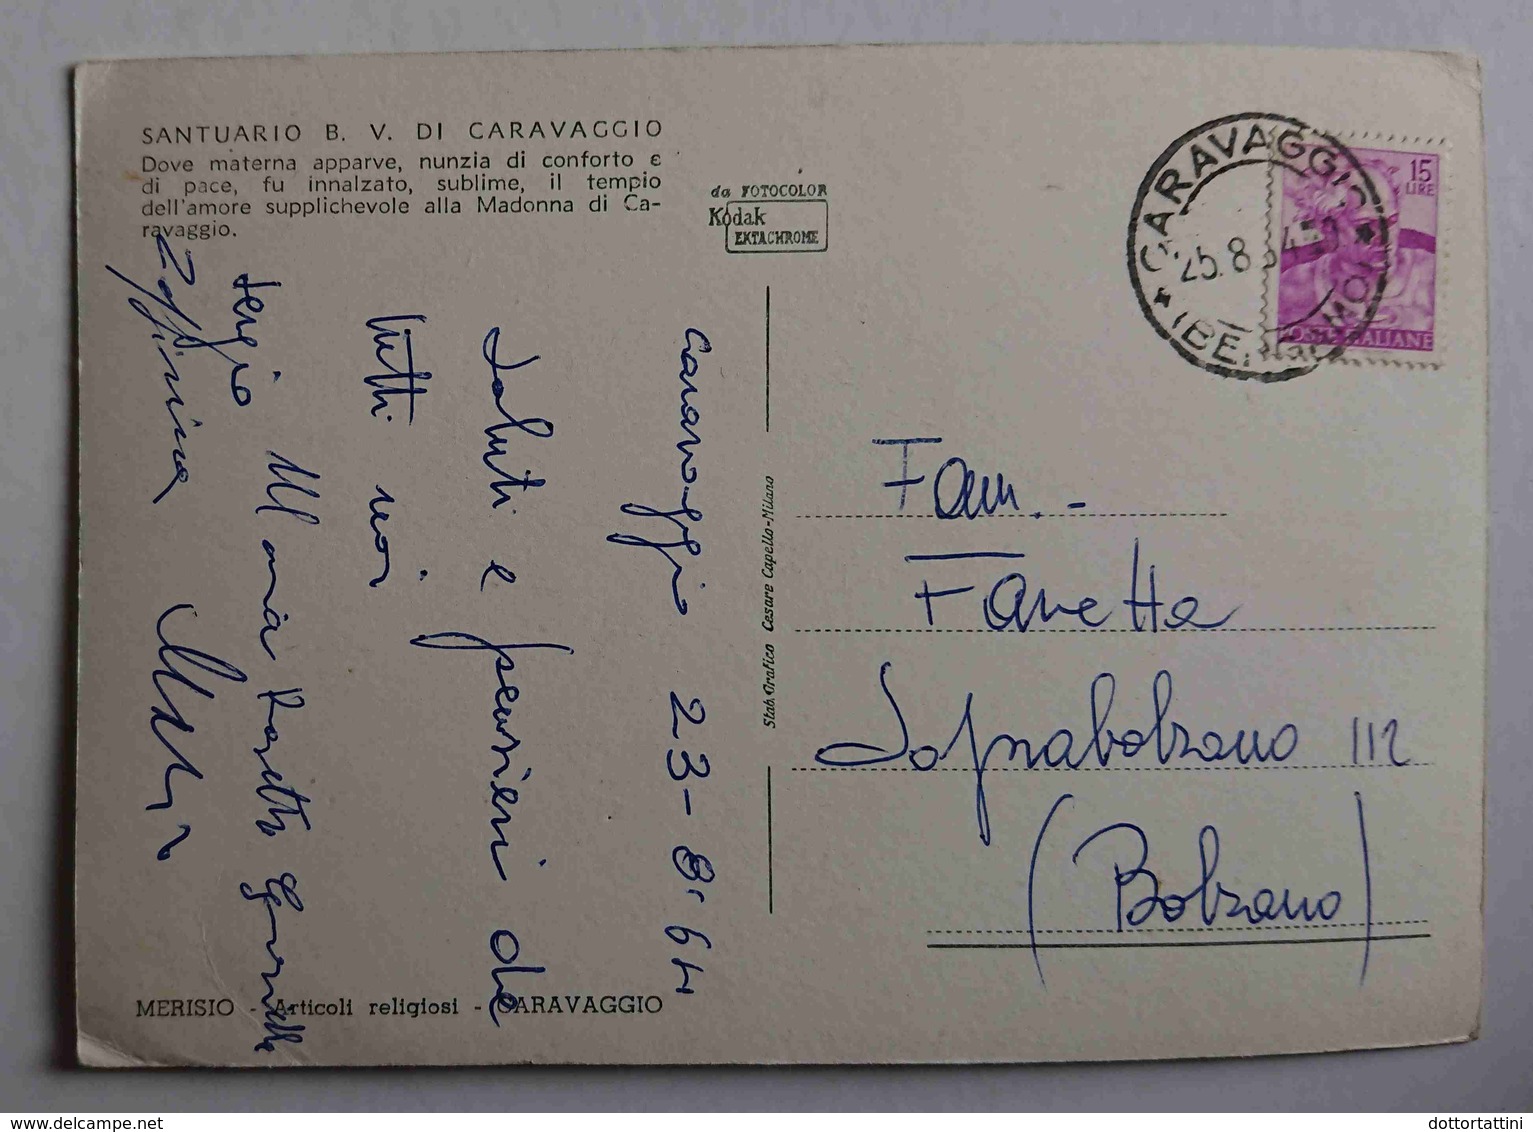 SANTUARIO B. V. DI CARAVAGGIO
Dove materna apparve, nunzia di conforto e
di pace, fu innalzato, sublime, il tempio
dell'amore supplichevole alla Madonna di Ca-
ravaggio.
da FOTOCOLOR
Kodak
EKTACHROME
CARAVAGGIO
25.8
(BERGAMO)
15
LIRE
POSTE ITALIANE
Caravaggio 23-8-64
Saluti e pensieri da
tutti noi
Sergio
Stab. Grafico Cesare Capello-Milano
Fam.-
Fanetta
Soprabolzano 112
(Bolzano)
MERISIO - Articoli religiosi - CARAVAGGIO
www.delcampe.net
dottortattini